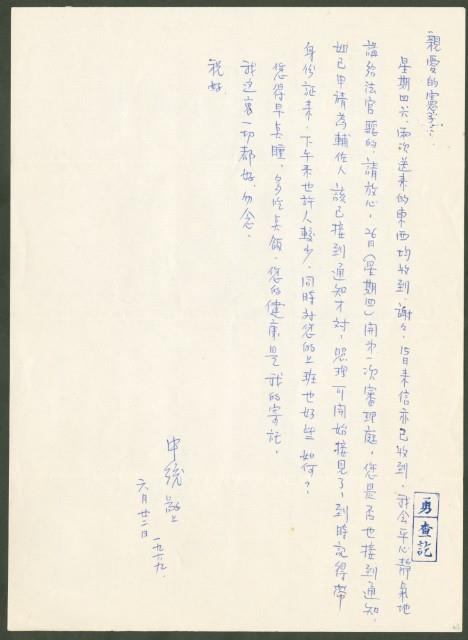 親愛的憲子:
星期四、六,兩次送來的東西均收到,謝々,15日來信亦已收到,我會平心靜氣地
講給法官聽的,請放心,26日(星期四)開第一次審理庭,您是否也接到通知,
如已申請為輔佐人,該已接到通知才對,照理可開始接見了,到時記得帶
身份証來,下午來也許人較少,同時對您的上班也好些,如何?
您得早點睡,多吃點飯,您的健康是我的寄託,
我這裏一切都好,勿念。
祝好
中統 敬上
六月廿二日
一九六九
勇查訖